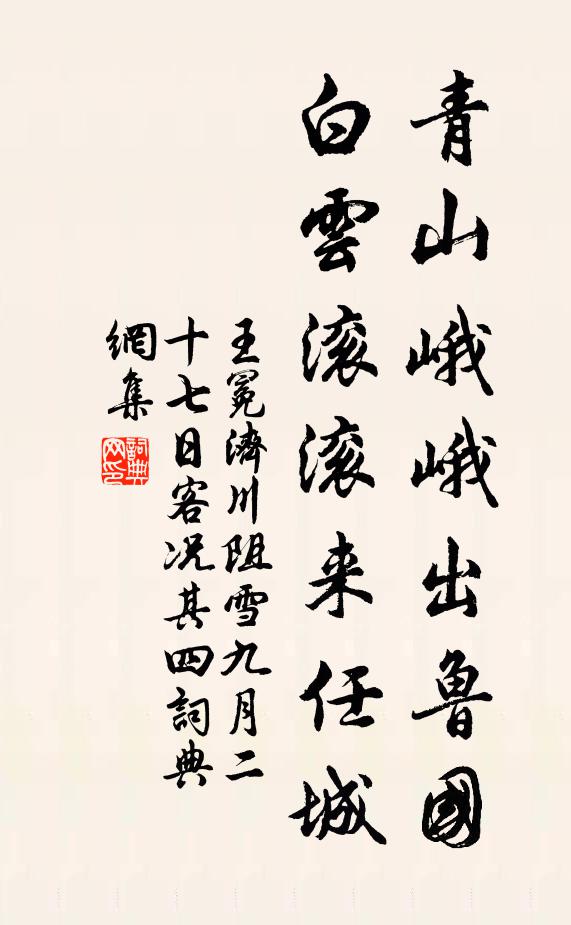 青山峨峨出魯國
白雲滚滚来任城
王冕濟川阻雪九月二
十七日客况其四詞典
網集
詞典網印